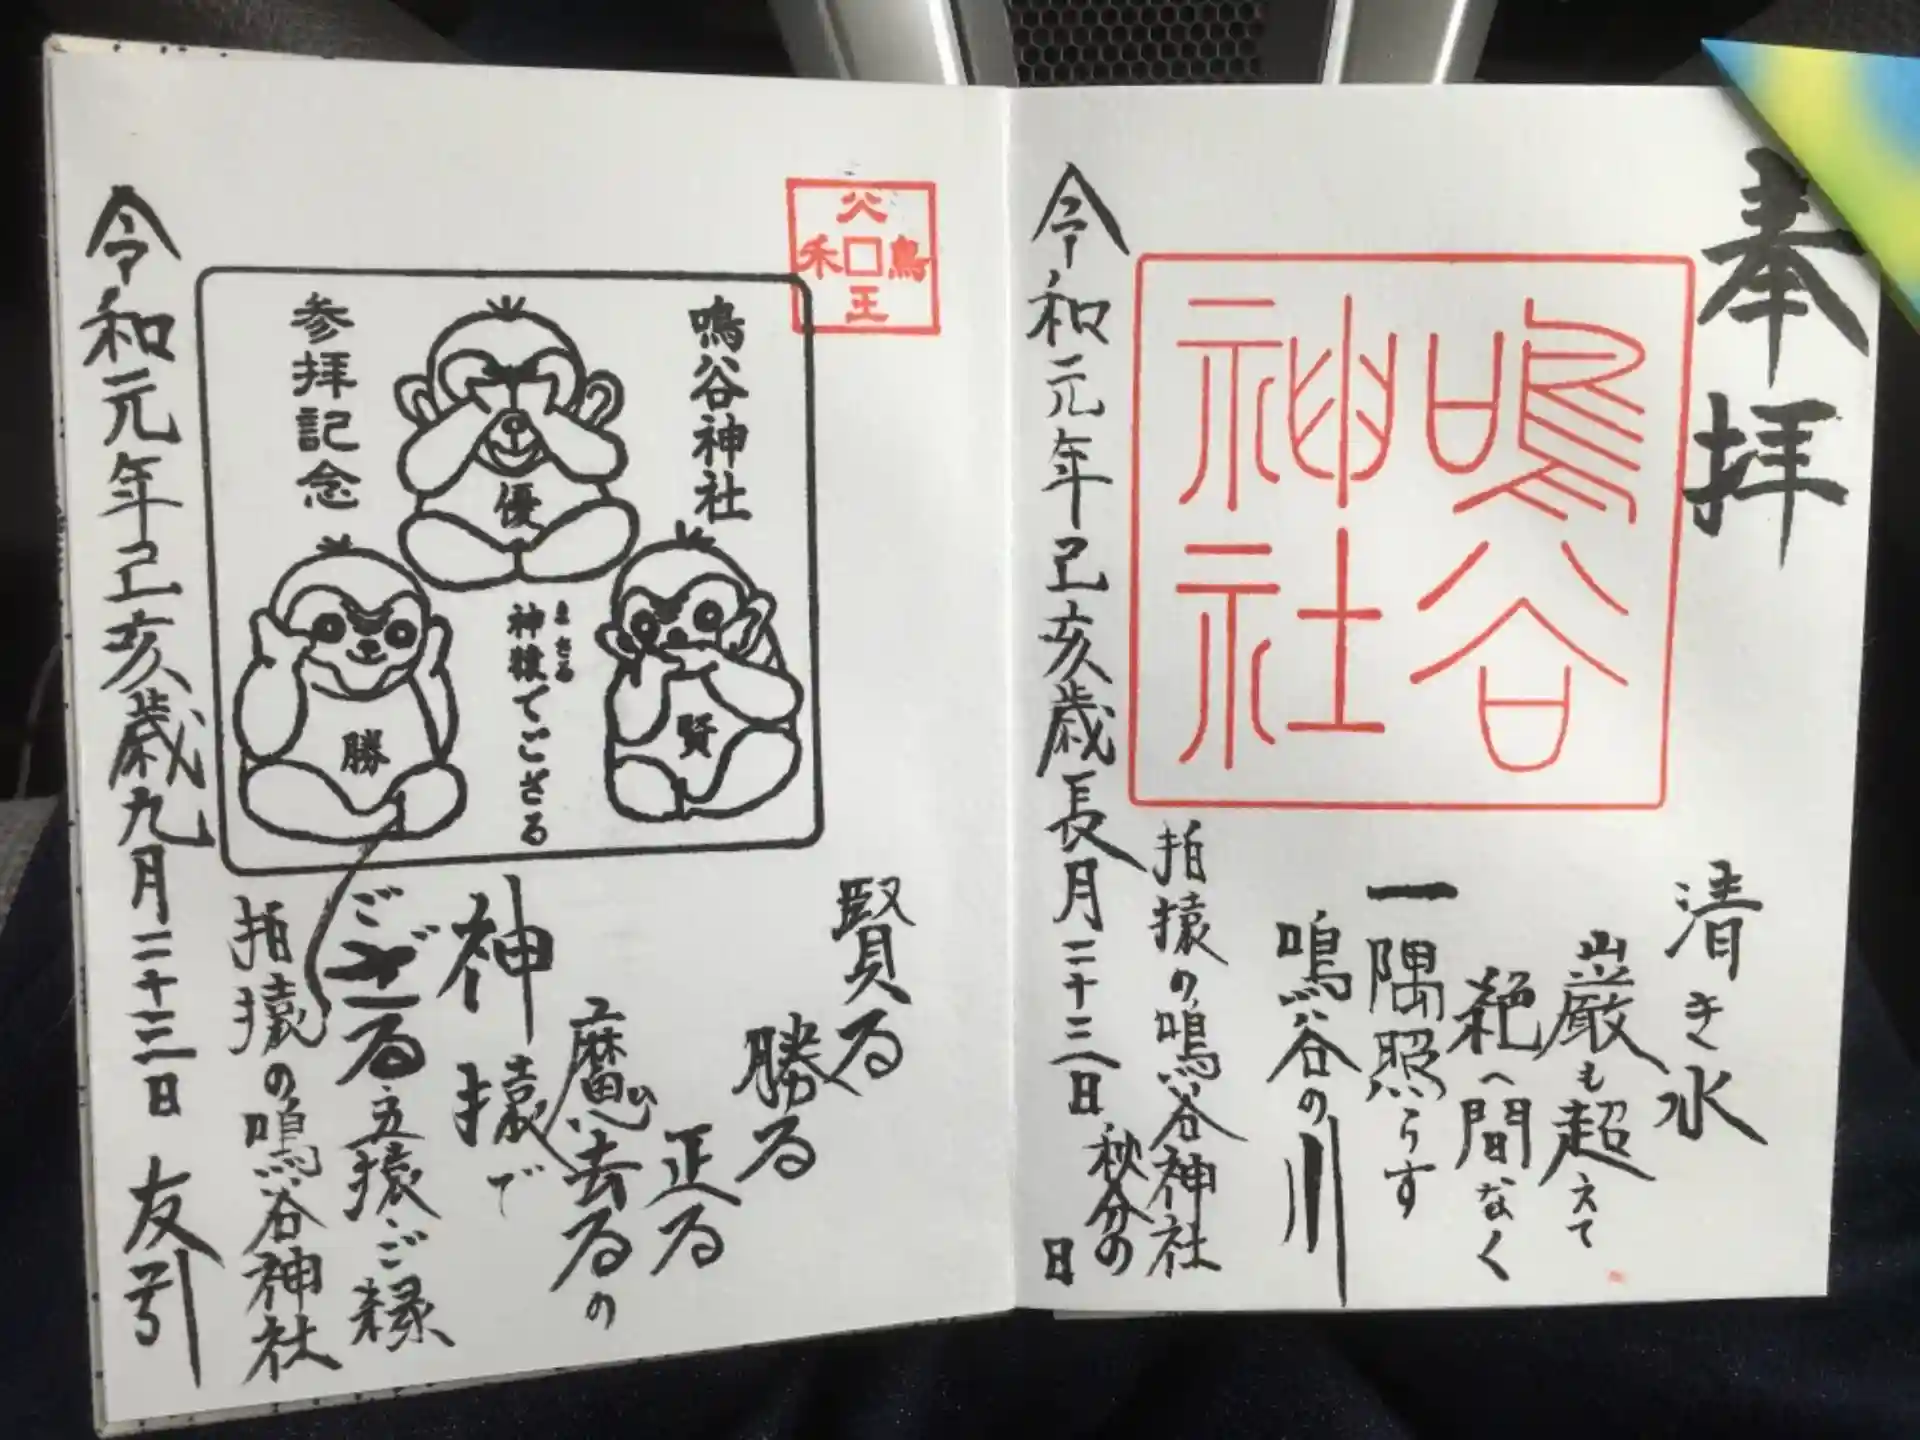 奉拝
鳴谷
神社
清き水
巌も超えて
絶へ間なく
一隅照らす
鳴谷の川
拍猿の鳴谷神社
令和元年己亥歳長月二十三日
秋分の
日
鳴谷神社
参拝記念
優
賢
勝
神猿でござる
まさる
賢る
勝る
正る
魔去るの
神猿で
ござる五猿ご縁
拍猿の鳴谷神社
令和元年己亥歳九月二十三日 友引